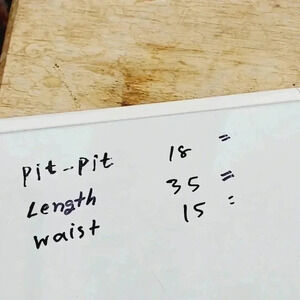 Pit-Pit 18 =
Length 35 =
Waist 15 =